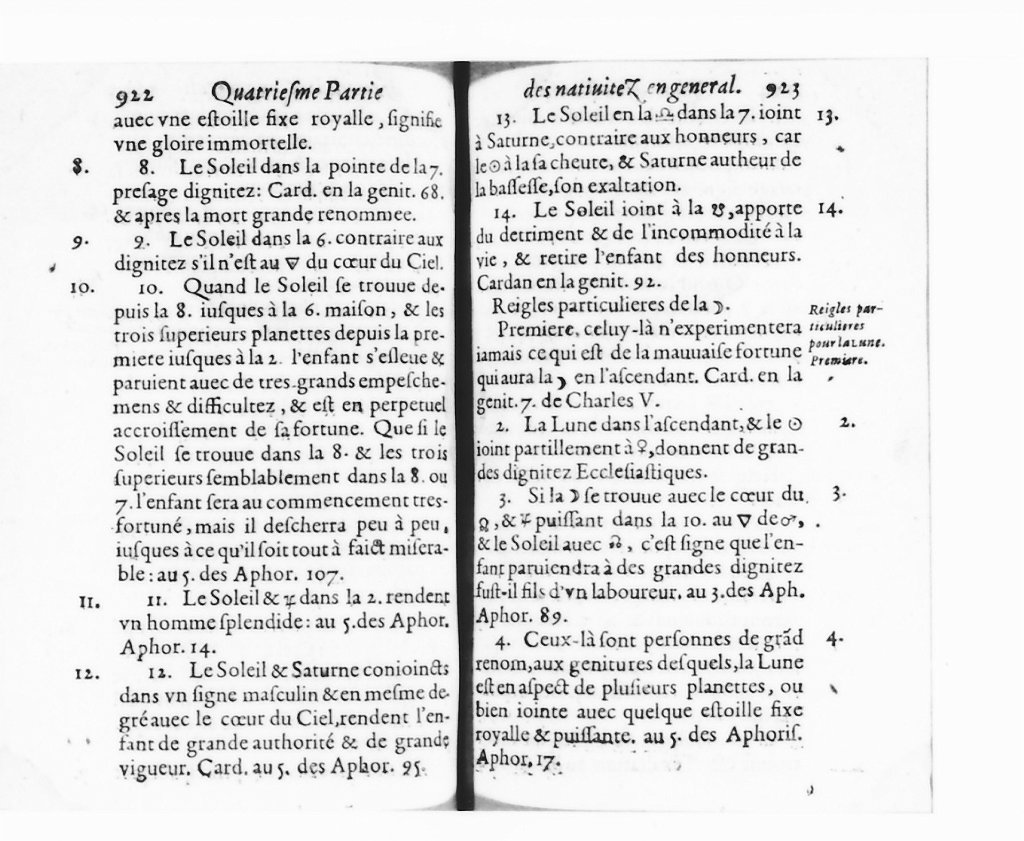 922 Quatrieſme Partie
auec vne eſtoille fixe royalle, ſignifie
vne gloire immortelle.
8. 8. Le Soleil dans la pointe de la 7.
preſage dignitez: Card. en la genit. 68.
& apres la mort grande renommee.
9. 9. Le Soleil dans la 6. contraire aux
dignitez s'il n'eſt au ▽ du cœur du Ciel.
10. 10. Quand le Soleil ſe trouue de-
puis la 8. iuſques à la 6. maiſon, & les
trois ſuperieurs planettes depuis la pre-
miere iuſques à la 2. l'enfant s'eſleue &
paruient auec de tres-grands empeſche-
mens & difficultez, & eſt en perpetuel
accroiſſement de ſa fortune. Que ſi le
Soleil ſe trouue dans la 8. & les trois
ſuperieurs ſemblablement dans la 8. ou
7. l'enfant ſera au commencement tres-
fortuné, mais il deſcherra peu à peu,
iuſques à ce qu'il ſoit tout à faict miſera-
ble: au 5. des Aphor. 107.
11. 11. Le Soleil & ♃ dans la 2. rendent
vn homme ſplendide: au 5. des Aphor.
Aphor. 14.
12. 12. Le Soleil & Saturne conioincts
dans vn ſigne maſculin & en meſme de-
gré auec le cœur du Ciel, rendent l'en-
fant de grande authorité & de grande
vigueur. Card. au 5. des Aphor. 95.
des natiuitez en general. 923
13. Le Soleil en la ♎ dans la 7. ioint 13.
à Saturne, contraire aux honneurs, car
le ☉ à la ſa cheute, & Saturne autheur de
la baſſeſſe, ſon exaltation.
14. Le Soleil ioint à la ☋, apporte 14.
du detriment & de l'incommodité à la
vie, & retire l'enfant des honneurs.
Cardan en la genit. 92.
Reigles particulieres de la ☽.
Reigles par-
ticulieres
pour la Lune.
Premiere.
Premiere, celuy-là n'experimentera
iamais ce qui eſt de la mauuaiſe fortune
qui aura la ☽ en l'aſcendant. Card. en la
genit. 7. de Charles V.
2. La Lune dans l'aſcendant, & le ☉ 2.
ioint partillement à ♀, donnent de gran-
des dignitez Eccleſiaſtiques.
3. Si la ☽ ſe trouue auec le cœur du 3.
♌, & ♃ puiſſant dans la 10. au ▽ de ♂,
& le Soleil auec ☊, c'eſt ſigne que l'en-
fant paruiendra à des grandes dignitez
fuſt-il fils d'vn laboureur. au 3. des Aph.
Aphor. 89.
4. Ceux-là ſont perſonnes de grãd 4.
renom, aux genitures deſquels, la Lune
eſt en aſpect de pluſieurs planettes, ou
bien iointe auec quelque eſtoille fixe
royalle & puiſſante. au 5. des Aphoriſ.
Aphor. 17.